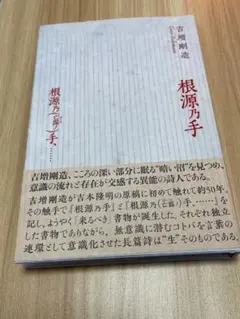 吉増剛造
根源乃手
根源乃(亡露ノ)手、……
吉増剛造、こころの深い部分に眠る“暗い沼”を見つめ、
意識の流れと存在が交感する異能の詩人である。
吉増剛造が吉本隆明の原稿に初めて触れて約50年。
その触手で『根源乃手』と『根源乃(亡露ノ)手、……』
を記し、ようやく「来るべき」書物が誕生した。それぞれ独立
した書物でありながら、無意識に潜むコトバを言葉の
連環として意識化させた長篇詩は“生”そのものである。